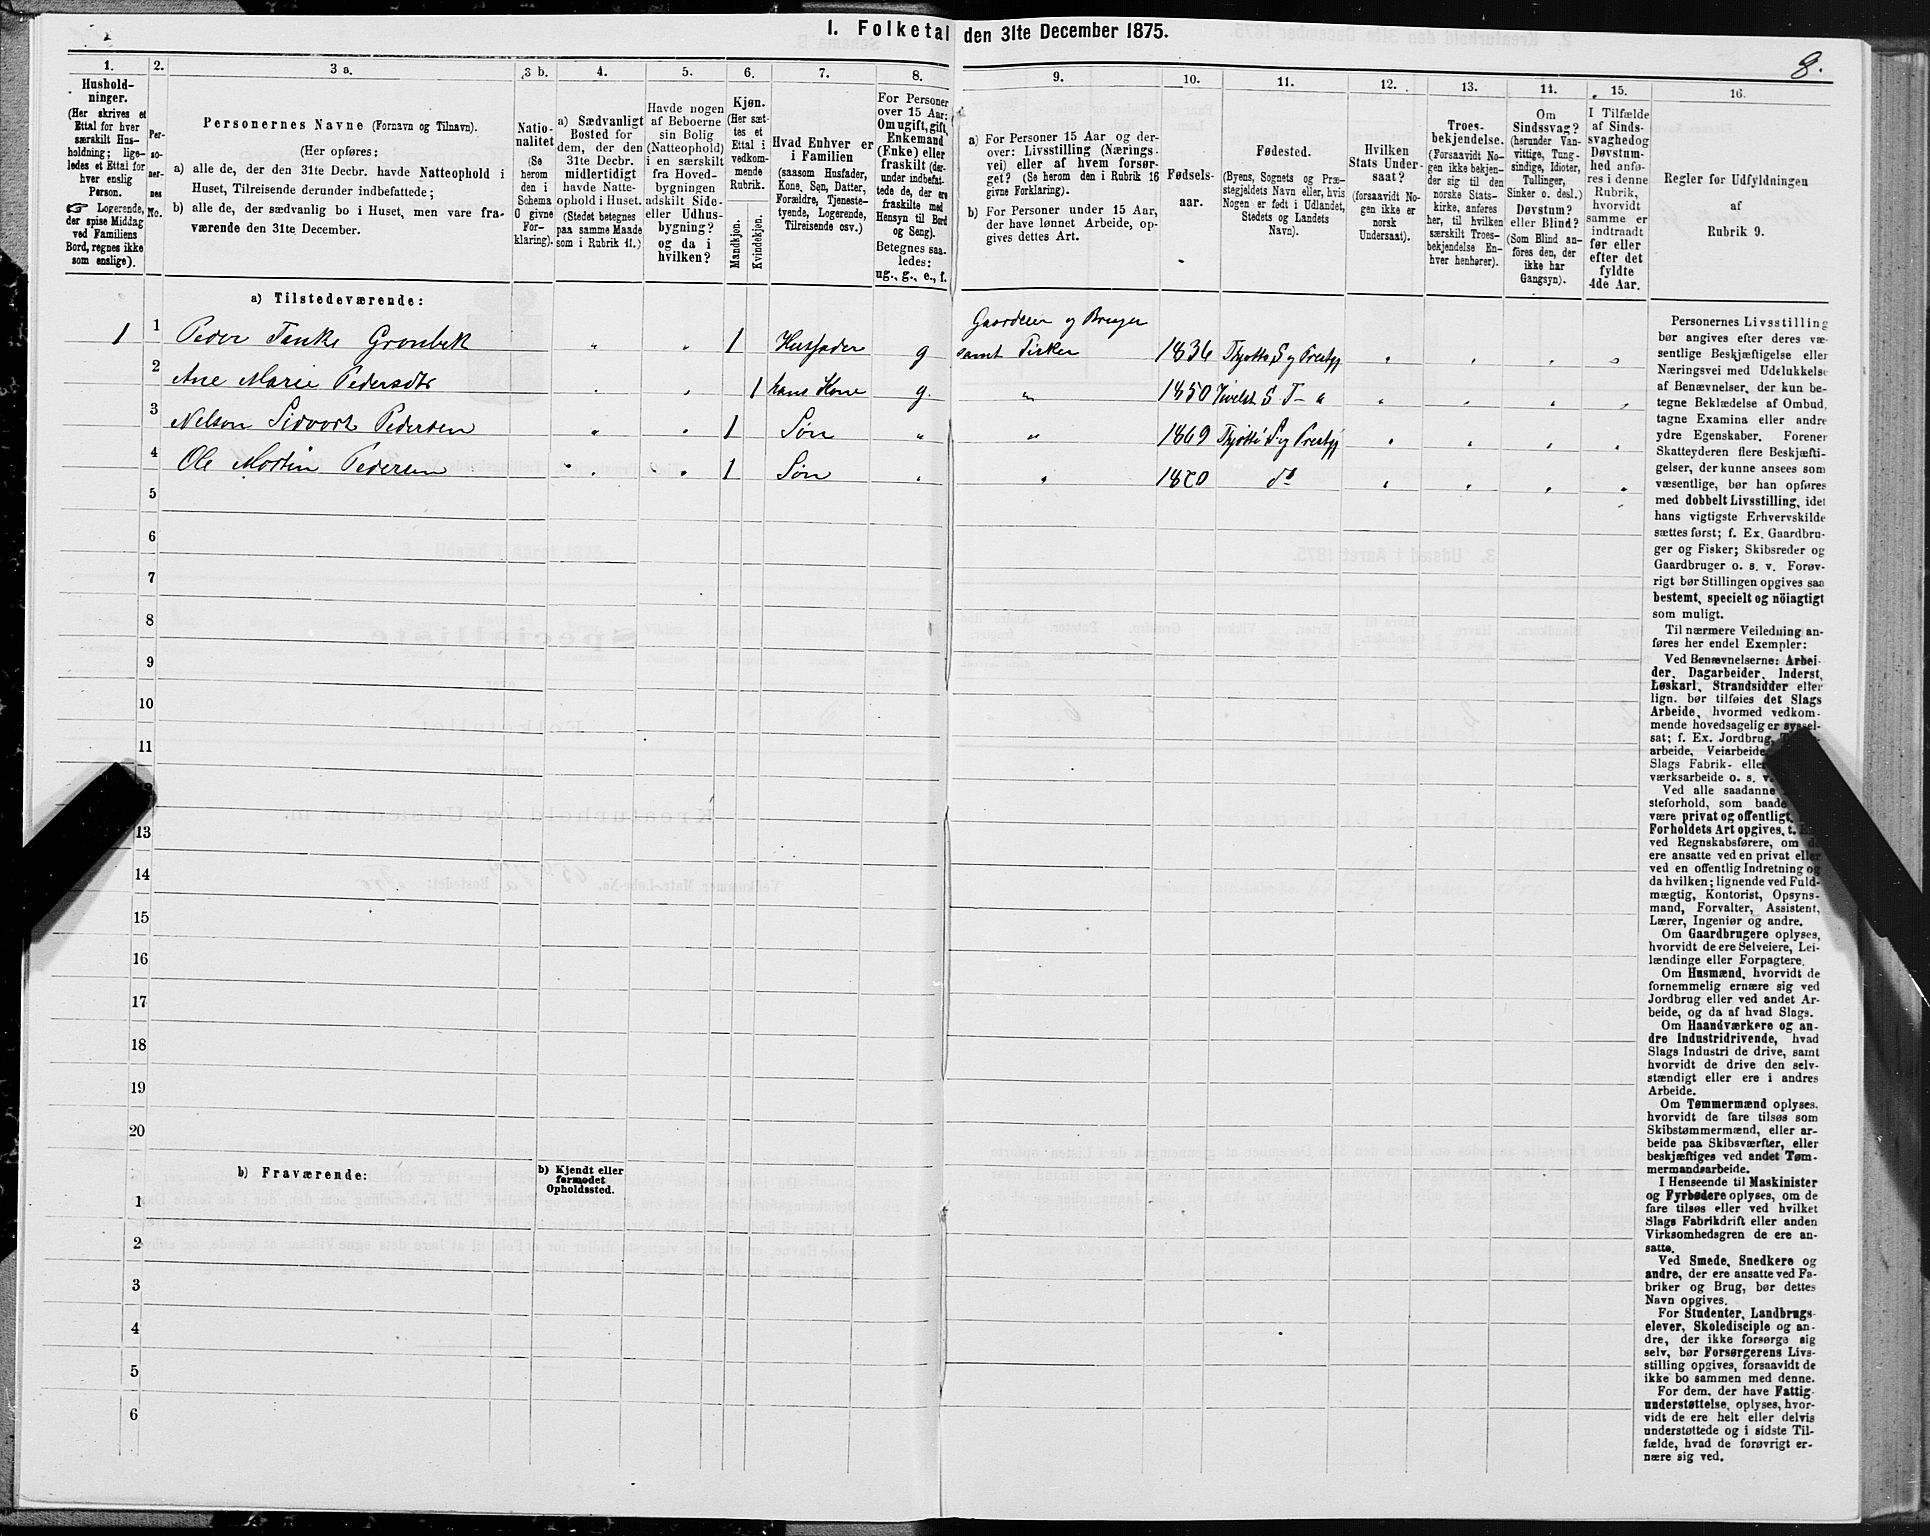 I. Folketal den 31te December 1875.
8.
1.
Hushold-
ninger.
(Her skrives et
Ettal for hver
særskilt Hus-
holdning; lige-
ledes et Ettal for
hver enslig
Person.
☞ Logerende,
der spise Middag
ved Familiens
Bord, regnes ikke
som enslige).
2.
Per-
so-
ner-
nes
No.
3 a.
Personernes Navne (Fornavn og Tilnavn).
(Her opføres:
a) alle de, der den 31te Decbr. havde Natteophold i
Huset, Tilreisende derunder indbefattede;
b) alle de, der sædvanlig bo i Huset, men vare fra-
værende den 31te December.
3 b.
Natio-
nalitet
(Se
herom
den i
Schema
O givne
For-
klaring).
4.
a) Sædvanligt
Bosted for
dem, der den
31te Decbr.
midlertidigt
havde Natte-
ophold i Huset.
(Stedet betegnes
paa samme Maade
som i Rubrik 11.)
5.
Havde nogen
af Beboerne
sin Bolig
(Natteophold)
i en særskilt
fra Hoved-
bygningen
adskilt Side-
eller Udhus-
bygning?
og da i
hvilken?
6.
Kjøn.
(Her sæt-
tes et
Ettal i
vedkom-
mende
Rubrik.
Mandkjøn.
Kvindekjøn.
7.
Hvad Enhver er
i Familien
(saasom Husfader,
Kone, Søn, Datter,
Forældre, Tjeneste-
tyende, Logerende,
Tilreisende osv.)
8.
For Personer
over 15 Aar:
Om ugift, gift,
Enkemand
(Enke) eller
fraskilt (der-
under indbefat-
tede de, der ere
fraskilte med
Hensyn til Bord
og Seng).
Betegnes saa-
ledes:
ug., g., e., f.
9.
a) For Personer 15 Aar og der-
over: Livsstilling (Nærings-
vei) eller af hvem forsør-
get? (Se herom den i Rubrik 16
givne Forklaring).
b) For Personer under 15 Aar,
der have lønnet Arbeide, op-
gives dettes Art.
10.
Fødsels-
aar.
11.
Fødested.
(Byens, Sognets og Præ-
stegjeldets Navn eller, hvis
Nogen er født i Udlandet,
Stedets og Landets
Navn).
12.
Hvilken
Stats Under-
saat?
(forsaavidt No-
gen ikke er
norsk
Undersaat).
13.
Troes-
bekjendelse.
(Forsaavidt No-
gen ikke bekjen-
der sig til den
norske Stats-
kirke, anføres
her, til hvilken
særskilt Troes-
bekjendelse En-
hver henhører).
14.
Om
Sindssvag?
(herunder Van-
vittige, Tung-
sindige, Idioter,
Tullinger,
Sinker o. desl.)
Døvstum?
eller Blind?
(Som Blind an-
føres den, der
ikke har
Gangsyn).
15.
I Tilfælde
af Sinds-
svaghed og
Døvstum-
hed anfø-
res i denne
Rubrik,
hvorvidt
samme er
indtraadt
før eller
efter det
fyldte
4de Aar.
16.
Regler for Udfyldningen
af
Rubrik 9.
a) Tilstedeværende:
1 1 Peder Tanke Grønbek " " 1 Husfader g Gaardeier og Bruger samt Fisker 1836 Thjøttø S og Prestgj " " " "
2 Ane Marie Pedersdtr " " 1 hans Kone g. " 1850 S T- " " " "
3 Nelson Sidvort Pedersen " " 1 Søn " " 1869 Thjøttø S og Prestgj " " " "
4 Ole Mortin Pedersen " " " 1 Søn " " 1870 do " " " "
5
6
7
8
9
10
11
13
14
15
16
17
18
19
20
b) Fraværende:
b) Kjendt eller
formodet
Opholdssted.
1
2
3
4
5
6
Personernes Livsstilling
bør angives efter deres væ-
sentlige Beskjæftigelse eller
Næringsvei med Udelukkelse
af Benævnelser, der kun be-
tegne Beklædelse af Ombud,
tagne Examina eller andre
ydre Egenskaber. Forener
Skatteyderen flere Beskjæfti-
gelser, der kunne ansees som
væsentlige, bør han opføres
med dobbelt Livsstilling, idet
hans vigtigste Erhvervskilde
sættes først; f. Ex. Gaardbru-
ger og Fisker; Skibsreder og
Gaardbruger o. s. v. Forøv-
rigt bør Stillingen opgives saa
bestemt, specielt og nöiagtigt
som muligt.
Til nærmere Veiledning an-
føres her endel Exempler:
Ved Benævnelserne: Arbei-
der, Dagarbeider, Inderst,
Løskarl, Strandsidder eller
lign. bør tilføies det Slags
Arbeide, hvormed vedkom-
mende hovedsagelig er syssel-
sat; f. Ex. Jordbrug,
arbeide, Veiarbeide,
Slags Fabrik- eller
værksarbeide o. s. v.
Ved alle saadanne
steforhold, som baade
være privat og offentligt,
Forholdets Art opgives, t.
ved Regnskabsførere, om de
ere ansatte ved en privat eller
ved en offentlig Indretning og
da hvilken; lignende ved Fuld-
mægtig, Kontorist, Opsyns-
mand, Forvalter, Assistent,
Lærer, Ingeniør og andre.
Om Gaardbrugere oplyses,
hvorvidt de ere Selveiere, Lei-
lændinge eller Forpagtere.
Om Husmænd, hvorvidt de
fornemmelig ernære sig ved
Jordbrug eller ved andet Ar-
beide, og da af hvad Slags.
Om Haandværkere og an-
dre Industridrivende, hvad
Slags Industri de drive, samt
hvorvidt de drive den selv-
stændigt eller ere i andres
Arbeide.
Om Tømmermænd oplyses,
hvorvidt de fare tilsøs som
Skibstømmermænd, eller ar-
beide paa Skibsværfter, eller
beskjæftiges ved andet Tøm-
mermandsarbeide.
I Henseende til Maskinister
og Fyrbødere oplyses, om de
fare tilsøs eller ved hvilket
Slags Fabrikdrift eller anden
Virksomhedsgren de ere an-
satte.
Ved Smede, Snedkere og
andre, der ere ansatte ved Fa-
briker og Brug, bør dettes
Navn opgives.
For Studenter, Landbrugs-
elever, Skoledisciple og an-
dre, der ikke forsørge sig
selv, bør Forsørgerens Livs-
stilling opgives, forsaavidt de
ikke bo sammen med denne.
For dem, der have Fattig-
understøttelse, oplyses, hvor-
vidt de ere helt eller delvis
understøttede og i sidste Til-
fælde, hvad de forøvrigt er-
nære sig ved.